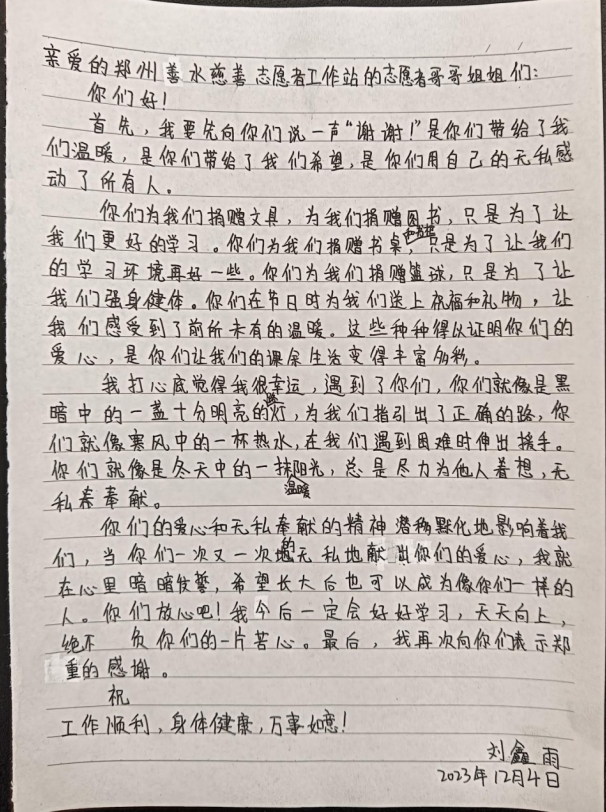 亲爱的郑州善水慈善志愿者工作站的志愿者哥哥姐姐们：
你们好！
首先，我要先向你们说一声“谢谢！”是你们带给了我
们温暖，是你们带给了我们希望，是你们用自己的无私感
动了所有人。
你们为我们捐赠文具，为我们捐赠图书，只是为了让
我们更好的学习。你们为我们捐赠书桌，只是为了让我们
的学习环境再好一些。你们为我们捐赠篮球，只是为了让
我们强身健体。你们在节日时为我们送上祝福和礼物，让
我们感受到了前所未有的温暖。这些种种得以证明你们的
爱心，是你们让我们的课余生活变得丰富多彩。
我打心底觉得我很幸运，遇到了你们，你们就像是黑
暗中的一盏十分明亮的灯，为我们指引出了正确的路，你
们就像寒风中的一杯热水，在我们遇到困难时伸出援手。
你们就像是冬天中的一抹阳光，总是尽力为他人着想，无
温暖
私奉献。
你们的爱心和无私奉献的精神潜移默化地影响着我
们，当你们一次又一次地无私地献出你们的爱心，我就
的
在心里暗暗发誓，希望长大后也可以成为像你们一样的
人。你们放心吧！我今后一定会好好学习，天天向上，
绝不负你们的一片苦心。最后，我再次向你们表示郑
重的感谢。
祝
工作顺利，身体健康，万事如意！
刘鑫雨
2023年12月4日